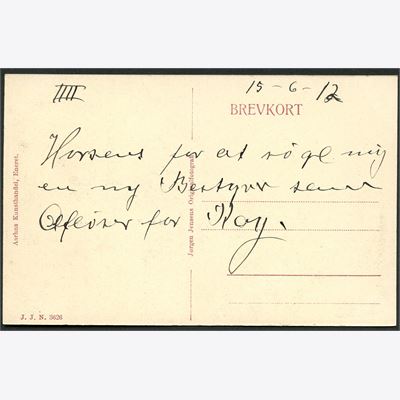 IIII
15-6-12
BREVKORT
Horsens for at søge mig
en ny Bestyrer samt
Afløser for Kay.
Aarhus Kunsthandel, Eneret.
Jørgen Jensens Originalfotografi
J. J. N. 3626